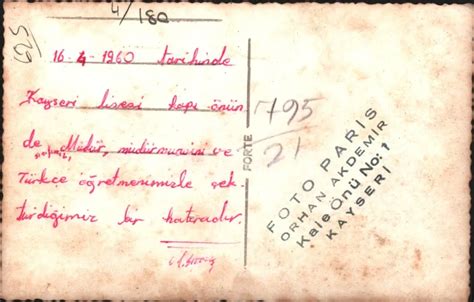 4/180
625
16-4-1960 tarihinde
Kayseri lisesi kapı önün
de Müdür, müdürmuavini ve
Türkçe öğretmenimizle çek
tirdiğimiz bir hatıradır.
FORTE
1795
21
FOTO PARİS
ORHAN AKDEMİR
Kale Önü No: 1
KAYSERİ